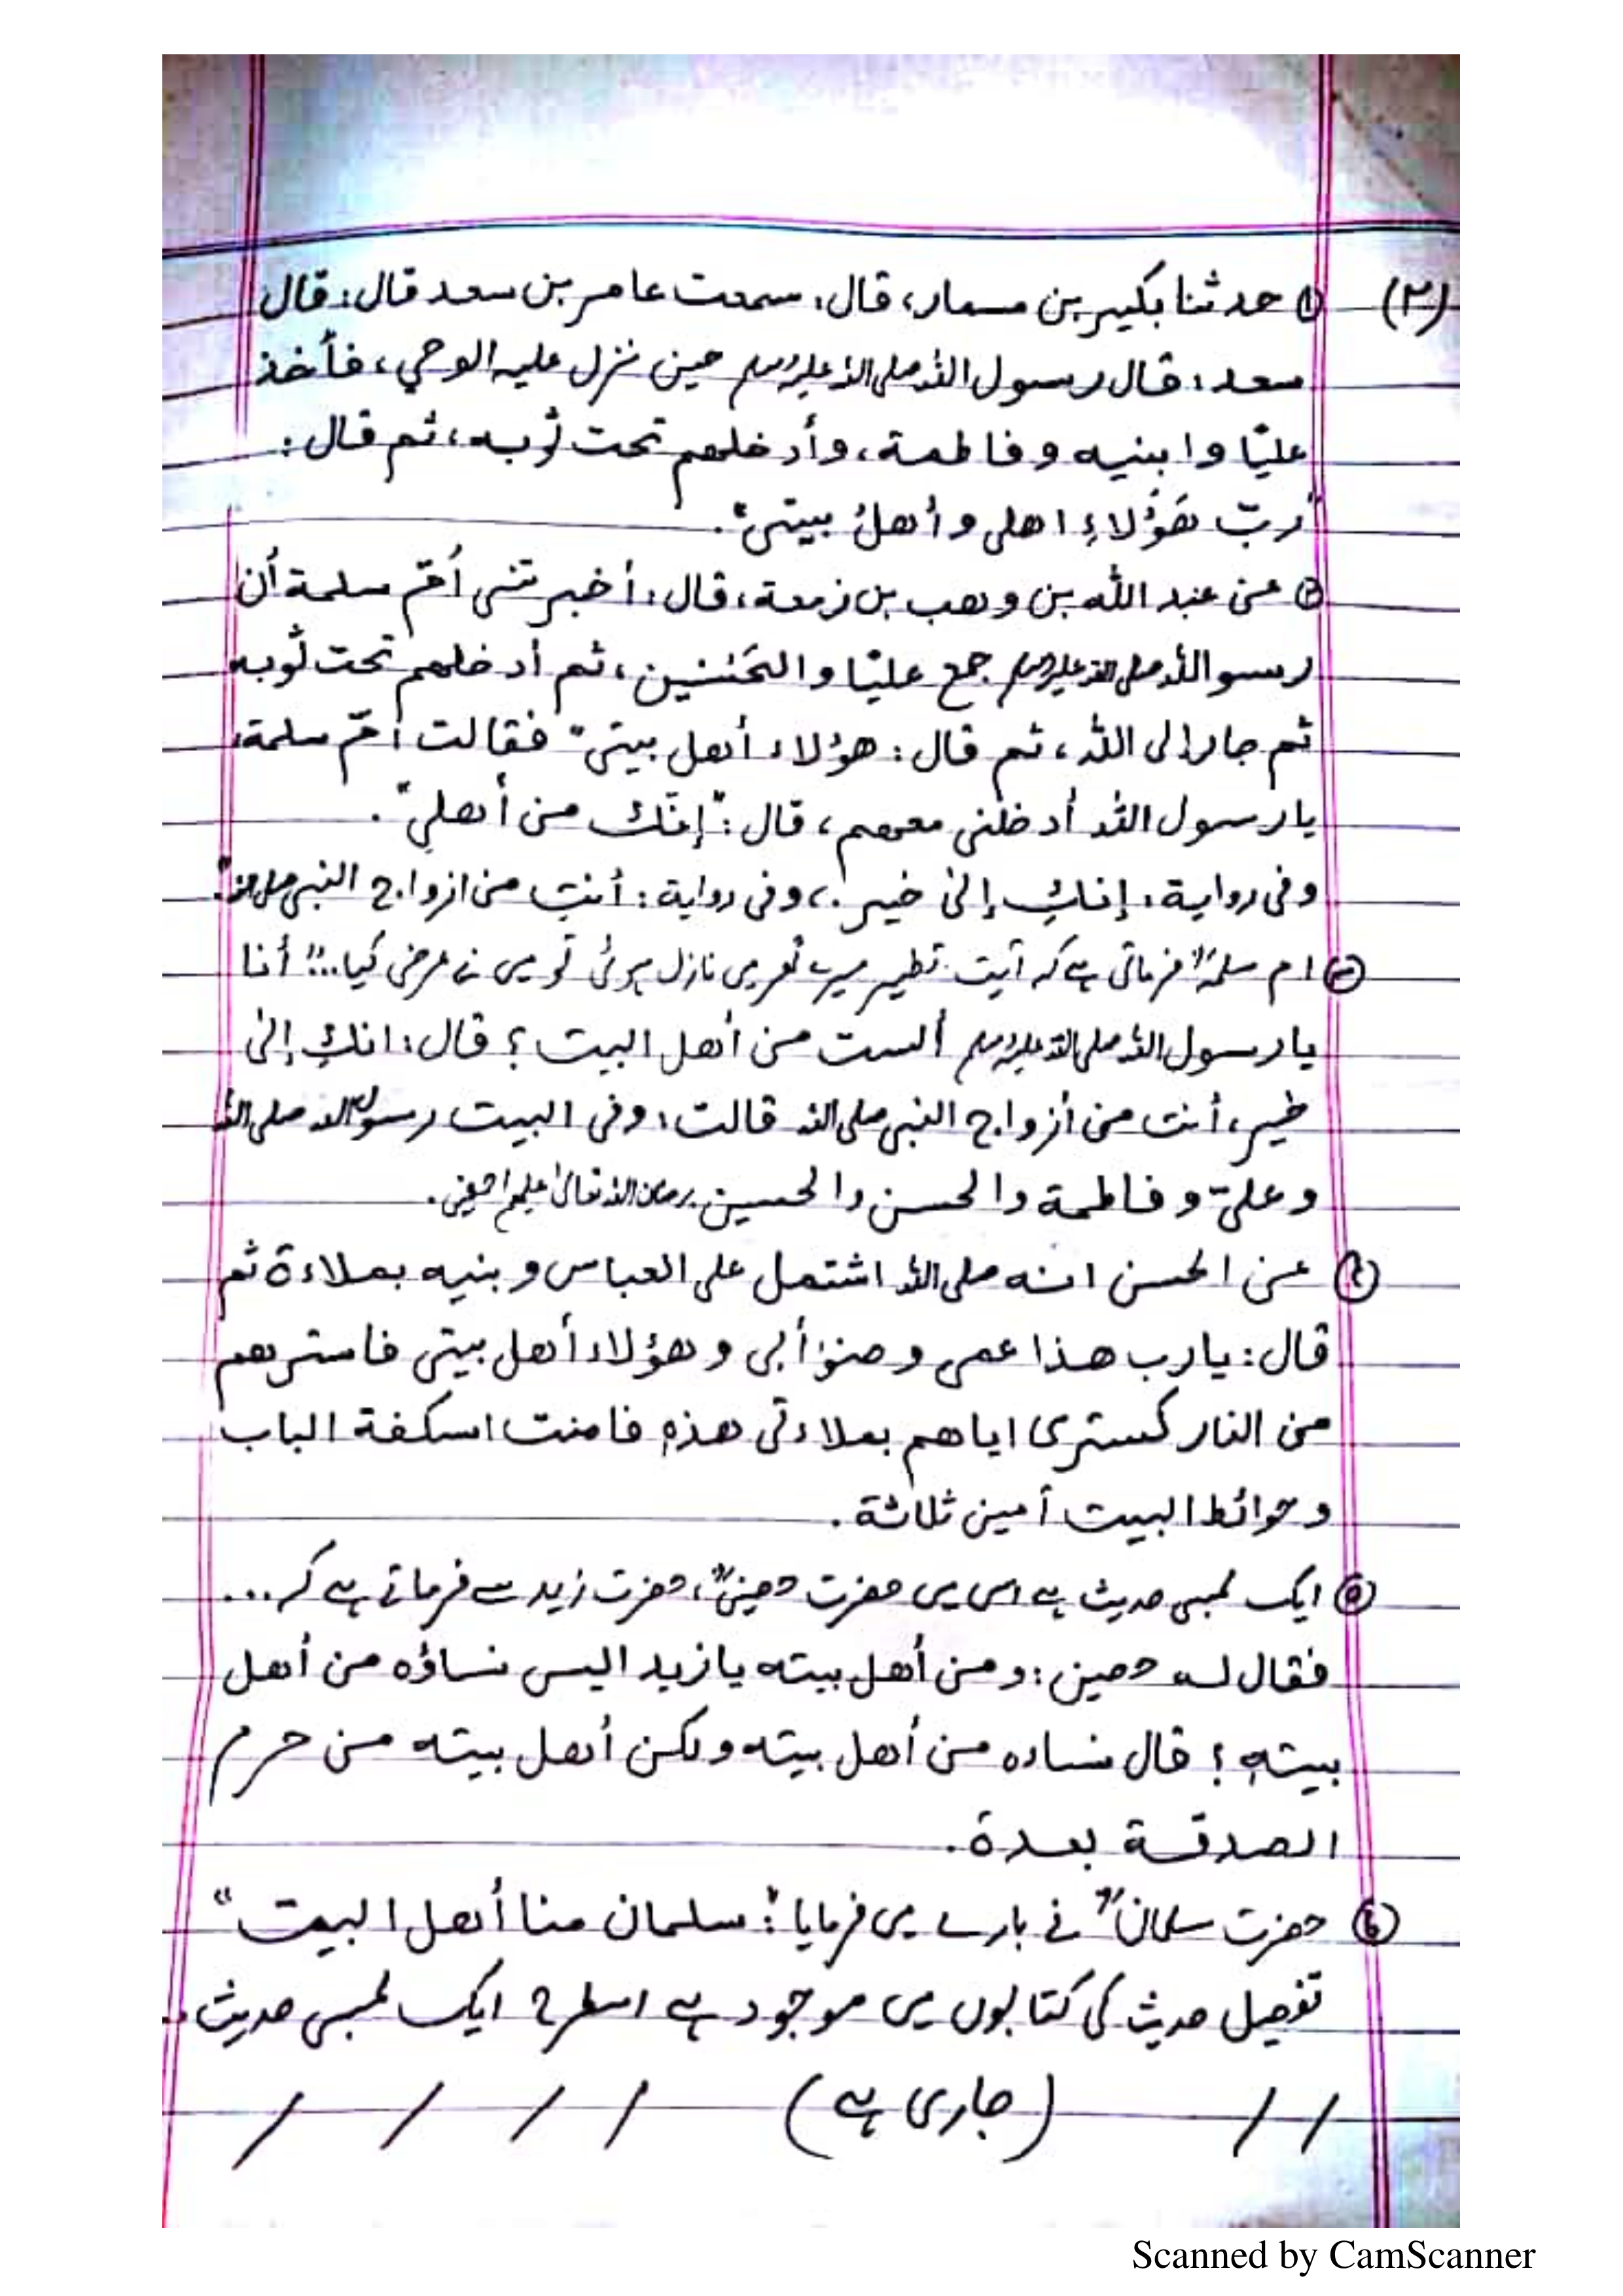 (۲) ① حدثنا بکیر بن مسمار، قال: سمعت عامر بن سعد قال: قال
سعد: قال رسول اللہ صلی اللہ علیہ وسلم حین نزل علیہ الوحي، فأخذ
علیّا وابنیہ وفاطمة، وأدخلهم تحت ثوبہ، ثم قال:
"ربّ هَؤُلاءِ اهلی وأهلُ بیتی".
② عن عبد اللہ بن وهب بن زمعة، قال: أخبرتنی أمّ سلمة أن
رسو اللہ صلی اللہ علیہ وسلم جمع علیّا والحَسَنین، ثم أدخلهم تحت ثوبہ
ثم جار إلی اللہ، ثم قال: هؤلاء أهل بیتی" فقالت أمّ سلمة:
یا رسول اللہ أدخلنی معهم، قال: "إنّك من أهلي".
وفی روایة: إنكِ إلیٰ خیر.، وفی روایة: أنتِ من ازواج النبی صلی اللہ"
③ ام سلمہؓ فرماتی ہے کہ آیت تطہیر میرے گھر می نازل ہوئی تو می نے عرض کیا..:" أنا
یا رسول اللہ صلی اللہ علیہ وسلم ألست من أهل البیت؟ قال: انكِ إلیٰ
خیر، أنت من أزواج النبی صلی اللہ قالت: وفی البیت رسول اللہ صلی اللہ
وعلیّ وفاطمة والحسن والحسین رضوان اللہ تعالیٰ علیهم اجمعین.
④ عن الحسن انه صلی اللہ اشتمل علی العباس وبنیه بملاءة ثم
قال: یا رب هذا عمی وصنو أبی وهؤلاء أهل بیتی فاسترهم
من النار کستری ایاهم بملاءتی هذہٖ فامنت اسکفة الباب
وحوائط البیت أمین ثلاثة.
⑤ ایک لمبی حدیث ہے اس می حضرت حصینؓ، حضرت زید سے فرماتے ہے کہ...
فقال له حصین: ومن أهل بیته یا زید الیس نساؤه من أهل
بیتهٖ؟ قال نساءه من أهل بیته ولکن أهل بیته من حرم
الصدقة بعدة.
⑥ حضرت سلمانؓ کے بارے می فرمایا: "سلمان منا أهل البیت"
تفصیل حدیث کی کتابوں می موجود ہے اسطرح ایک لمبی حدیث
/ / (جاری ہے) / / / /
Scanned by CamScanner